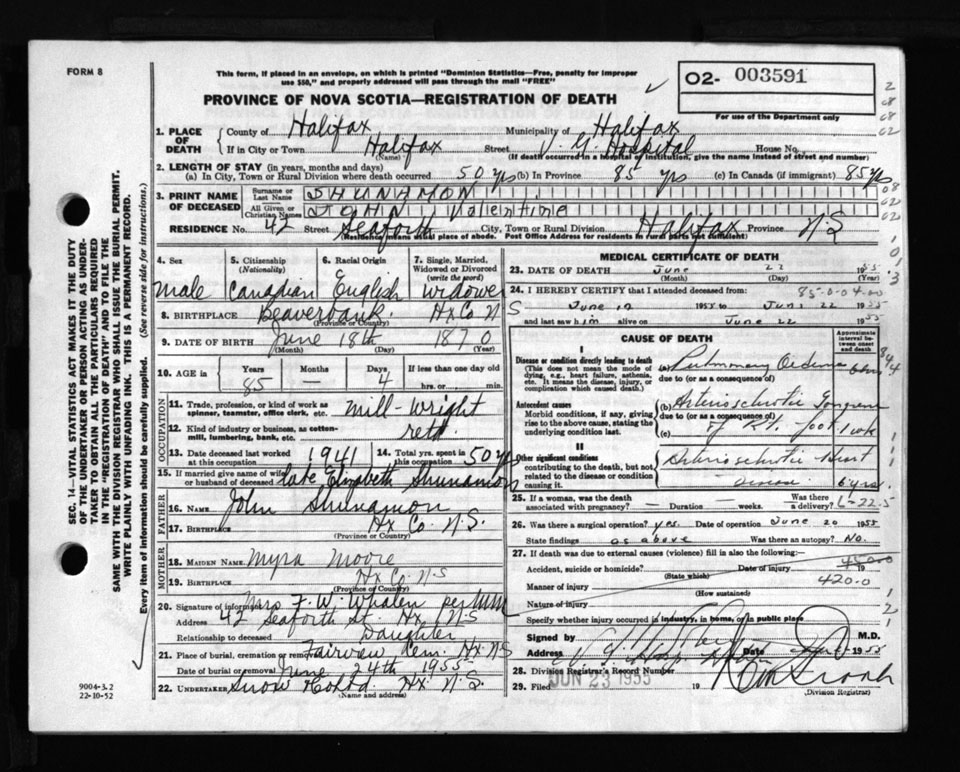 FORM 8
This form, if placed in an envelope, on which is printed "Dominion Statistics—Free, penalty for improper
use $50," and properly addressed will pass through the mail "FREE"
02- 003591
For use of the Department only
PROVINCE OF NOVA SCOTIA—REGISTRATION OF DEATH
1. PLACE OF DEATH
County of Halifax Municipality of Halifax
If in City or Town Halifax (Name) Street V. G. Hospital House No.
(If death occurred in a hospital or institution, give the name instead of street and number)
2. LENGTH OF STAY (in years, months and days)
(a) In City, Town or Rural Division where death occurred 50 yrs (b) In Province 85 yrs (c) In Canada (if immigrant) 85 yrs
3. PRINT NAME OF DECEASED
Surname or Last Name SHUNAMON
All Given or Christian Names JOHN Valentine
RESIDENCE No. 42 Street Seaforth City, Town or Rural Division Halifax Province N S
(Residence means usual place of abode. Post Office Address for residents in rural parts not sufficient)
4. Sex male
5. Citizenship (Nationality) Canadian
6. Racial Origin English
7. Single, Married, Widowed or Divorced (write the word) widower
8. BIRTHPLACE Beaverbank. Hx Co N S
(Province or Country)
9. DATE OF BIRTH June 18th 1870
(Month) (Day) (Year)
10. AGE in Years 85 Months — Days 4 If less than one day old hrs. or min.
OCCUPATION
11. Trade, profession, or kind of work as spinner, teamster, office clerk, etc. mill-wright
12. Kind of industry or business, as cotton-mill, lumbering, bank, etc. retd
13. Date deceased last worked at this occupation 1941 14. Total yrs. spent in this occupation 50 yrs
15. If married give name of wife or husband of deceased late Elizabeth Shunamon
FATHER
16. Name John Shunamon
17. Birthplace Hx Co. N. S.
(Province or Country)
MOTHER
18. Maiden Name Myra Moore
19. Birthplace Hx Co. N-S
(Province or Country)
20. Signature of informant Mrs F. W. Whalen per
Address 42 Seaforth St. Hx N-S
Relationship to deceased Daughter
21. Place of burial, cremation or removal Fairview Cem. Hx. NS
Date of burial or removal June 24th 1955
22. Undertaker Snow Co Ltd. Hx. N. S.
(Name and address)
MEDICAL CERTIFICATE OF DEATH
23. DATE OF DEATH June 22 1955.
(Month) (Day)
24. I HEREBY CERTIFY that I attended deceased from: 85-0-04-00
June 1955 to June 22 1955
and last saw him alive on June 22 1955
CAUSE OF DEATH
Approximate interval between onset and death
I
Disease or condition directly leading to death
(This does not mean the mode of dying, e.g., heart failure, asthenia, etc. It means the disease, injury, or complication which caused death.)
(a) Pulmonary Oedema 6 hrs
due to (or as a consequence of)
Antecedent causes
Morbid conditions, if any, giving rise to the above cause, stating the underlying condition last.
(b) Arteriosclerotic Gangrene
due to (or as a consequence of)
(c) of Rt. foot 1 wk
II
Other significant conditions
contributing to the death, but not related to the disease or condition causing it.
Arteriosclerotic Heart
Disease 6 yrs.
25. If a woman, was the death associated with pregnancy? — Duration — weeks. Was there a delivery?
26. Was there a surgical operation? yes. Date of operation June 20 1955
State findings as above Was there an autopsy? No.
27. If death was due to external causes (violence) fill in also the following:—
Accident, suicide or homicide? (State which) Date of injury 19
Manner of injury 420.0
(How sustained)
Nature of injury
Specify whether injury occurred in industry, in home, or in public place
Signed by M.D.
Address Date 1955
28. Division Registrar's Record Number
29. Filed JUN 23 1955 19
(Division Registrar)
9004-3.2
22-10-52
SEC. 14—VITAL STATISTICS ACT MAKES IT THE DUTY
OF THE UNDERTAKER OR PERSON ACTING AS UNDER-
TAKER TO OBTAIN ALL THE PARTICULARS REQUIRED
IN THE "REGISTRATION OF DEATH" AND TO FILE THE
SAME WITH THE DIVISION REGISTRAR WHO SHALL ISSUE THE BURIAL PERMIT.
WRITE PLAINLY WITH UNFADING INK. THIS IS A PERMANENT RECORD.
Every item of information should be carefully supplied. (See reverse side for instructions.)